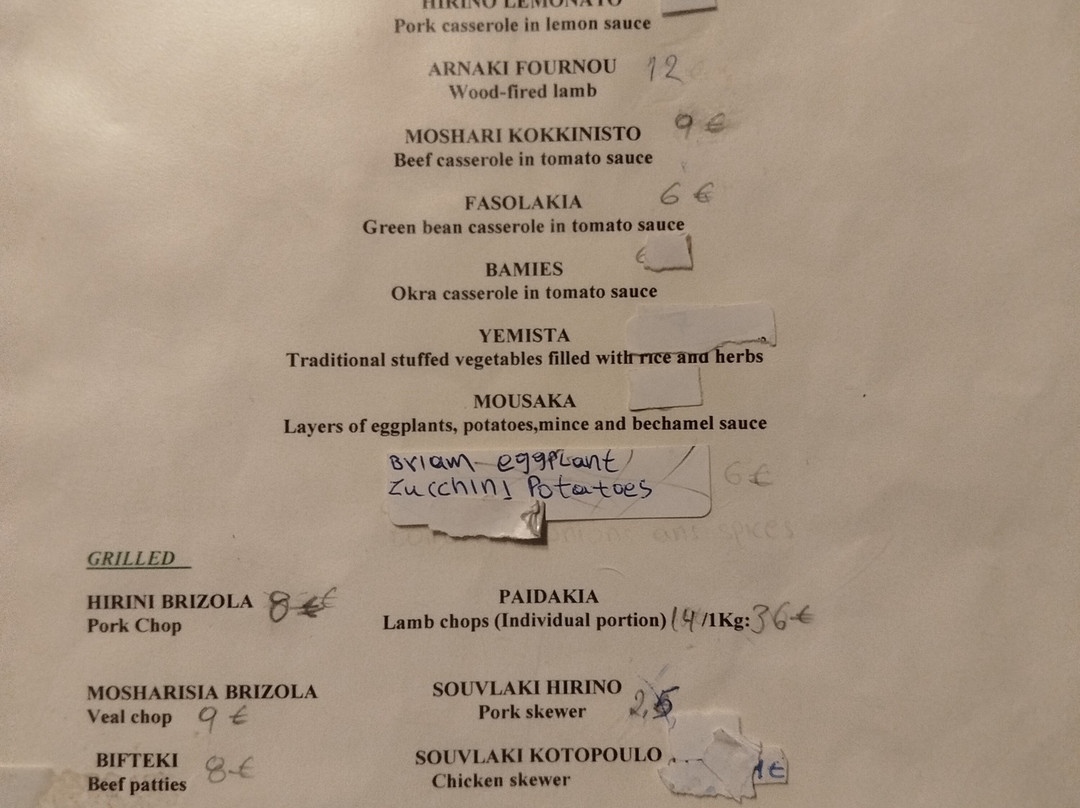 HIRINO LEMONATO
Pork casserole in lemon sauce
ARNAKI FOURNOU 12
Wood-fired lamb
MOSHARI KOKKINISTO 9 €
Beef casserole in tomato sauce
FASOLAKIA 6 €
Green bean casserole in tomato sauce
BAMIES
Okra casserole in tomato sauce
YEMISTA
Traditional stuffed vegetables filled with rice and herbs
MOUSAKA
Layers of eggplants, potatoes,mince and bechamel sauce
Briam eggplant
Zucchini Potatoes 6€
and spices
GRILLED
HIRINI BRIZOLA 8 €
Pork Chop
PAIDAKIA
Lamb chops (Individual portion) 14 /1Kg: 36 €
MOSHARISIA BRIZOLA
Veal chop 9 €
SOUVLAKI HIRINO
Pork skewer 2,5
BIFTEKI
Beef patties 8 €
SOUVLAKI KOTOPOULO
Chicken skewer